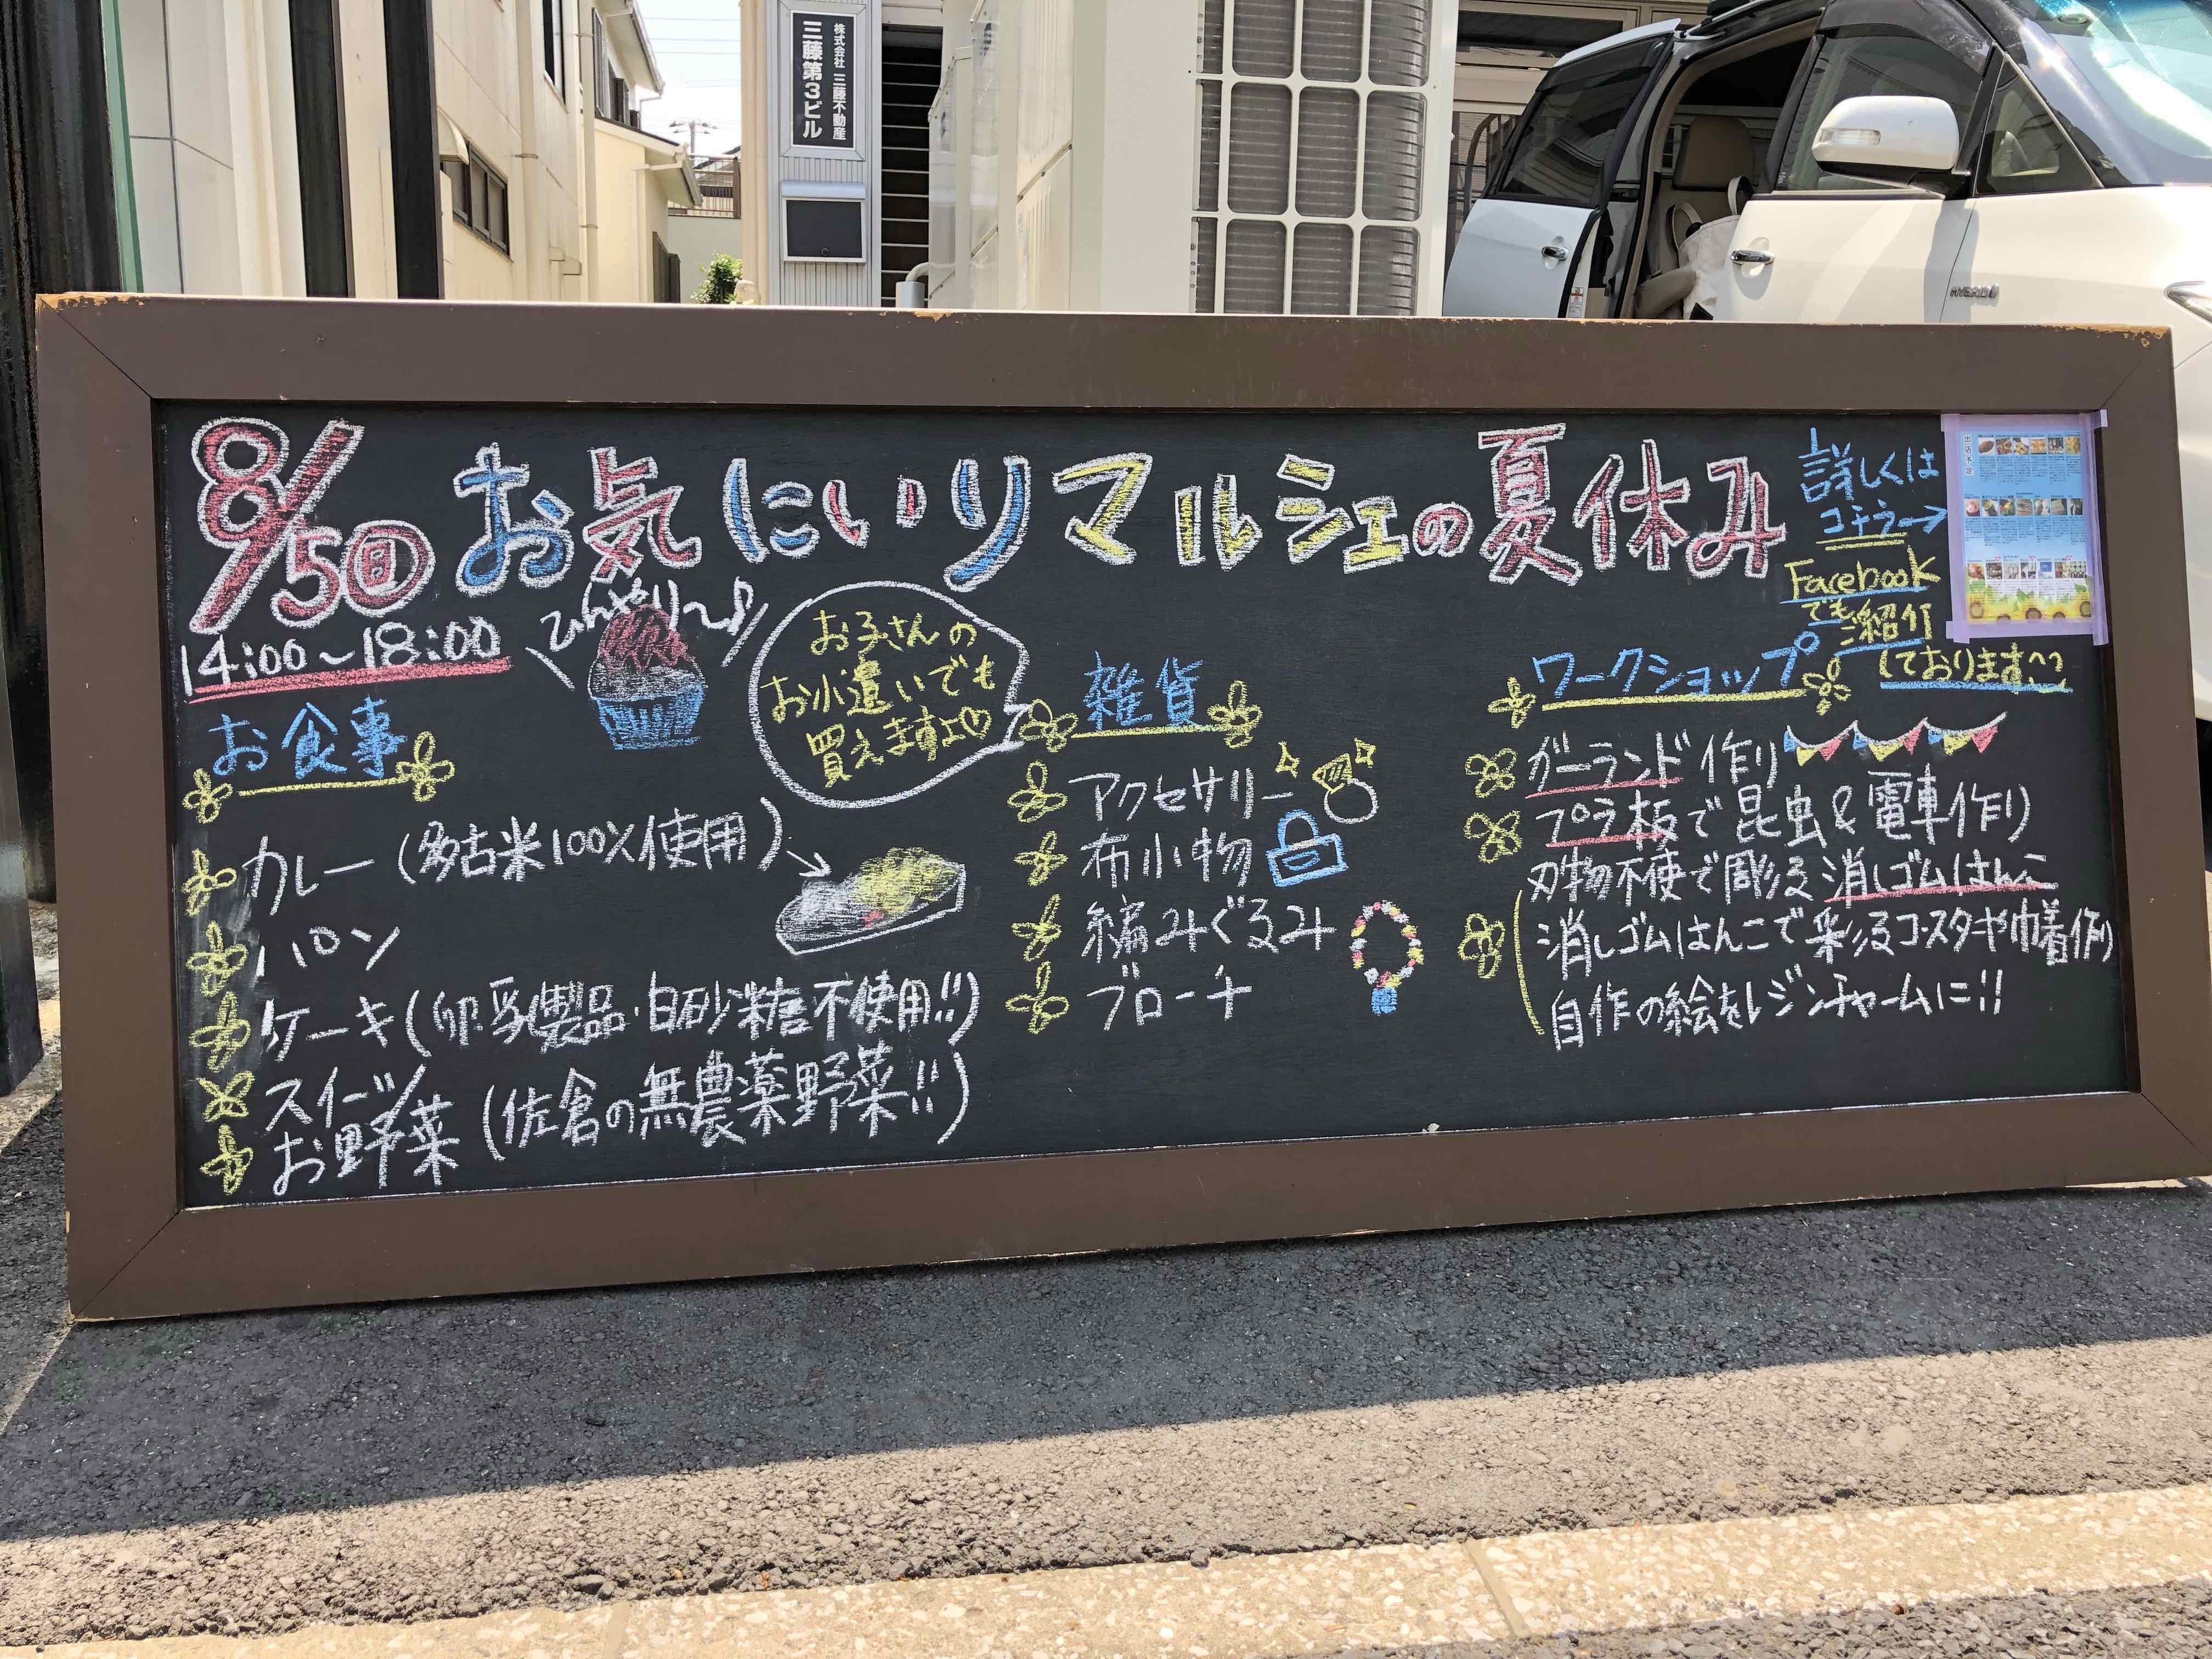 株式会社 三藤不動産
三藤第3ビル
HYBRID
8/5㊐ お気にいりマルシェの夏休み
14:00~18:00
ひんやり~♪
お子さんの
お小遣いでも
買えますよ♡
詳しくは
コチラ→
出店予定
Facebook
でもご紹介
しております^^
お食事
カレー(多古米100%使用)
パン
ケーキ(卵・乳製品・白砂糖不使用!!)
スイーツ
お野菜(佐倉の無農薬野菜!!)
雑貨
アクセサリー
布小物
編みぐるみ
ブローチ
ワークショップ
ガーランド作り
プラ板で昆虫&電車作り
刃物不使で彫る消しゴムはんこ
消しゴムはんこで彩るコースタや巾着作り
自作の絵をレジンチャームに!!